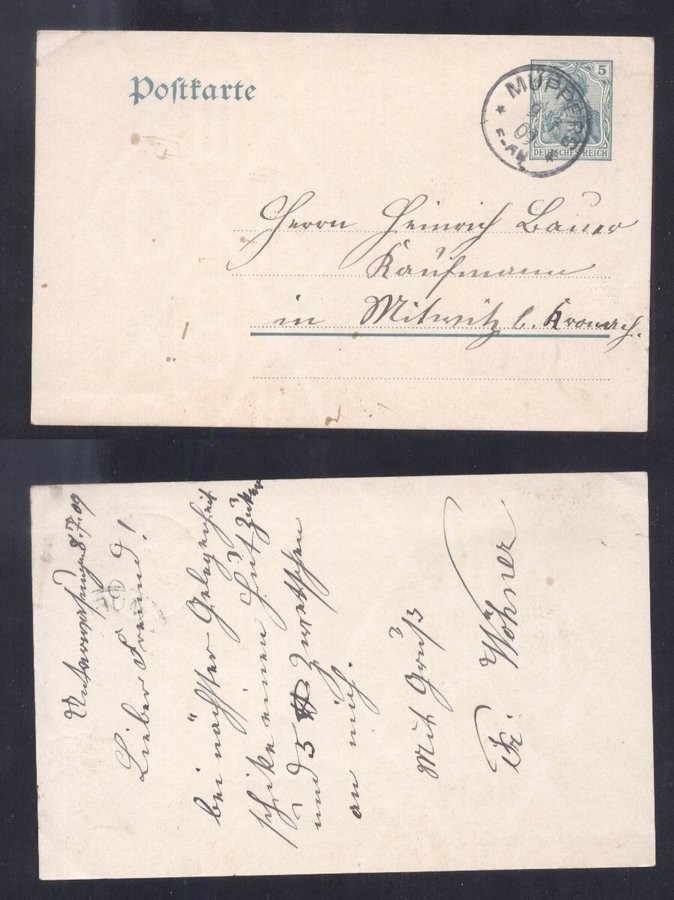 Postkarte
5
DEUTSCHES REICH
MUPPERG
09
Herrn Heinrich Bauer
Kaufmann
in Mitwitz b. Kronach.
8.7.09
Lieber Freund!
bei nächster Gelegenheit
schike einen Hut Zuker
und 5 ℔ Zwetschen
an mich.
Mit Gruß
Fr. Wöhner